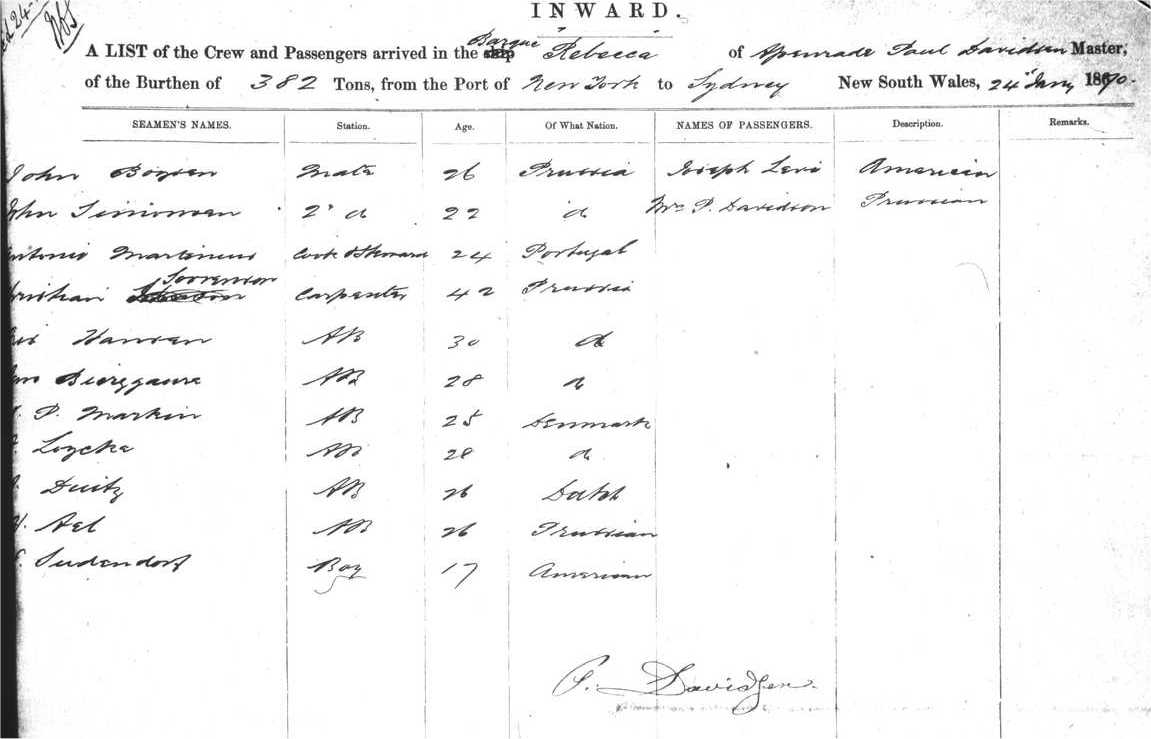 INWARD.
A LIST of the Crew and Passengers arrived in the Barque Rebecca of Apenrade Paul Davidsen Master,
of the Burthen of 382 Tons, from the Port of New York to Sydney New South Wales, 24 Jany 1870.
SEAMEN'S NAMES. Station. Age. Of What Nation. NAMES OF PASSENGERS. Description. Remarks.
John Boysen Mate 26 Prussia Joseph Levi American
John 2d 22 d Mrs P. Davidson Prussian
Cook & Steward 24 Portugal
Sorrenson
Carpenter 42 Prussia
Hansen AB 30 d
AB 28 d
P. Markin AB 25 Denmark
AB 28 d
AB 26 Dutch
AB 26 Prussian
Sudendorf Boy 17 American
P. Davidsen.